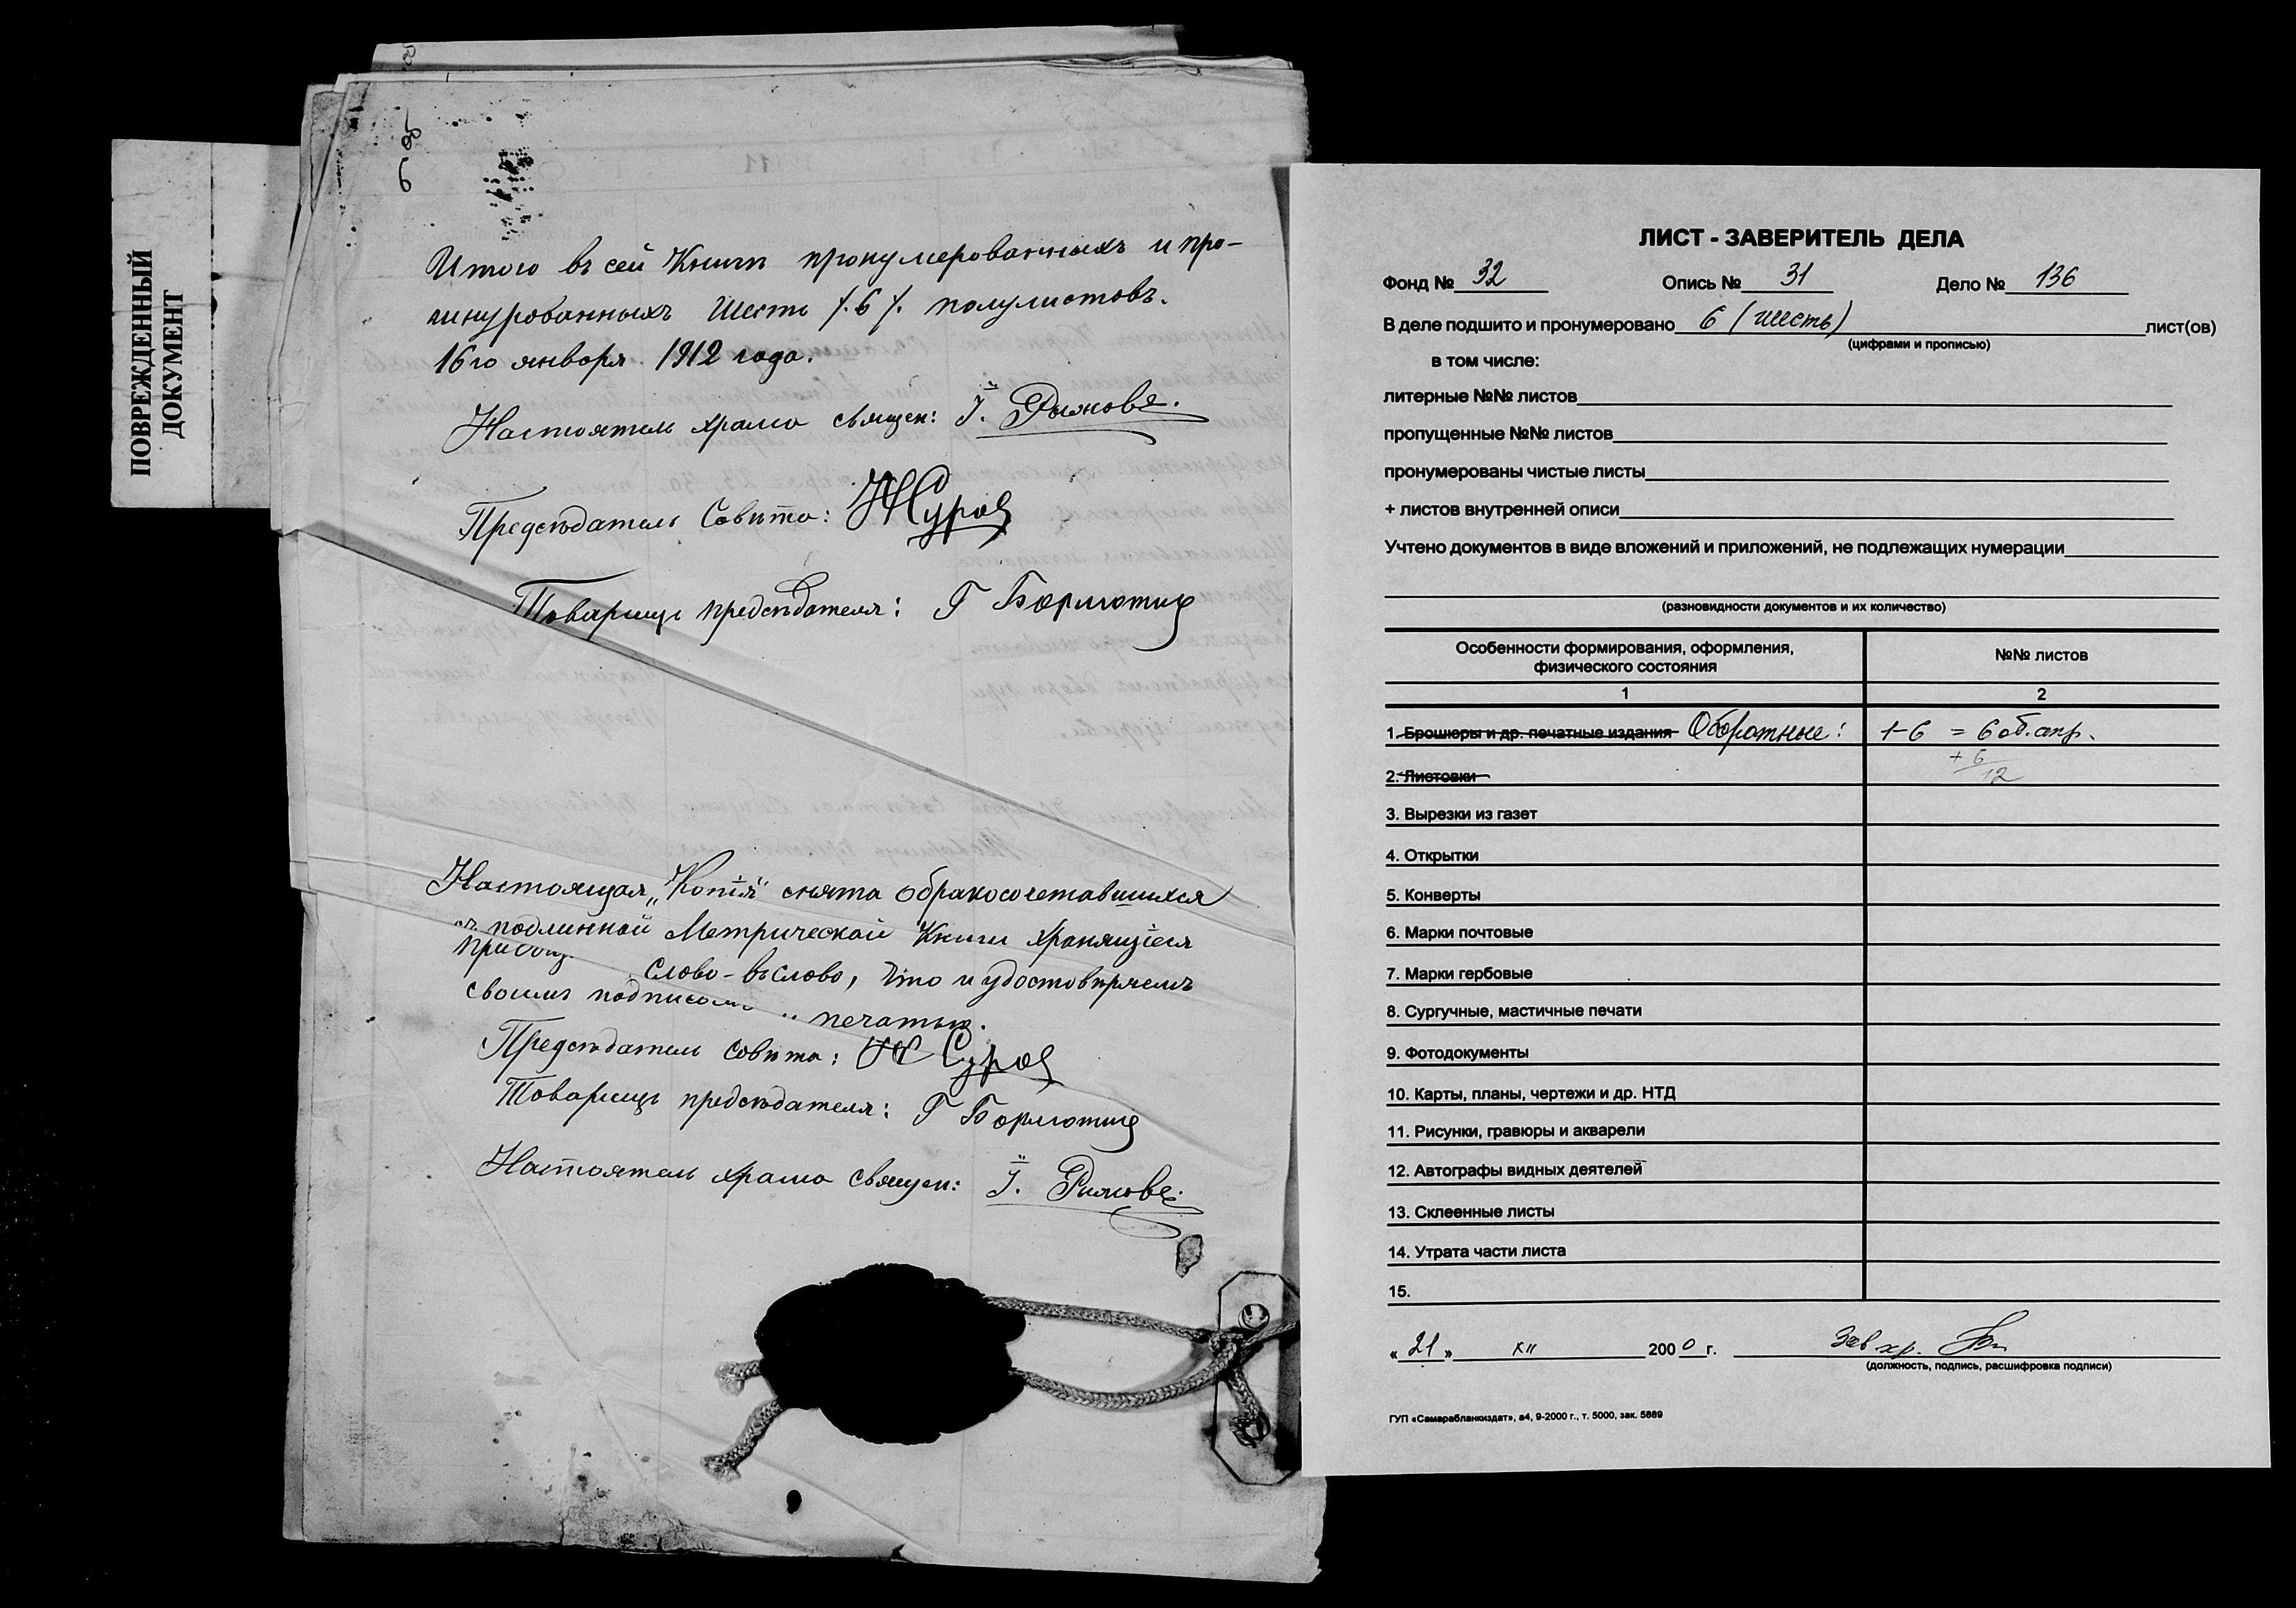 ПОВРЕЖДЕННЫЙ
ДОКУМЕНТ
об
6
Итого въ сей Книгѣ пронумерованныхъ и про-
шнурованныхъ Шесть /.6/. полулистовъ.
16го января 1912 года.
Настоятель храма священ: І.
Предсѣдатель Совѣта: Суров
Товарищъ предсѣдателя: Г Бормотин
Настоящая „Копія" снята о бракосочетавшихся
съ подлинной Метрической Книги хранящіеся
слово-въ слово, что и удостовѣряемъ
своимъ подписомъ и печатью.
Предсѣдатель совѣта: Суров
Товарищъ предсѣдателя: Г Бормотин
Настоятель храма священ: І.
ЛИСТ - ЗАВЕРИТЕЛЬ ДЕЛА
Фонд № 32 Опись № 31 Дело № 136
В деле подшито и пронумеровано 6 (шесть) лист(ов)
(цифрами и прописью)
в том числе:
литерные №№ листов
пропущенные №№ листов
пронумерованы чистые листы
+ листов внутренней описи
Учтено документов в виде вложений и приложений, не подлежащих нумерации
(разновидности документов и их количество)
Особенности формирования, оформления, №№ листов
физического состояния
1 2
1. Брошюры и др. печатные издания Оборотные: 1-6 = 6 об.
+ 6
2. Листовки 12
3. Вырезки из газет
4. Открытки
5. Конверты
6. Марки почтовые
7. Марки гербовые
8. Сургучные, мастичные печати
9. Фотодокументы
10. Карты, планы, чертежи и др. НТД
11. Рисунки, гравюры и акварели
12. Автографы видных деятелей
13. Склеенные листы
14. Утрата части листа
15.
« 21 » XII 2000 г. Зав хр.
(должность, подпись, расшифровка подписи)
ГУП «Самарабланкиздат», а4, 9-2000 г., т. 5000, зак. 5889